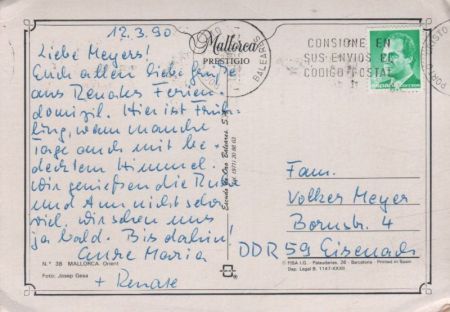 12.3.90
Liebe Meyers!
Euch allen liebe Grüße
aus Renates Ferien-
domizil. Hier ist Früh-
ling, wenn manche
Tage auch mit be-
decktem Himmel.
Wir genießen die Ruhe
und
viel, wir sehen uns
ja bald. Bis dahin!
Eure Maria
+ Renate
Mallorca
PRESTIGIO
BALEARES
CONSIGNE EN
SUS ENVIOS EL
CODIGO POSTAL
Fam.
Volker Meyer
Bornstr. 4
DDR 59 Eisenach
N.º 38 MALLORCA. Orient
Foto: Josep Gesa
© FISA I.G. - Palaudarias, 26 - Barcelona - Printed in Spain
Dep. Legal B. 1147-XXXII